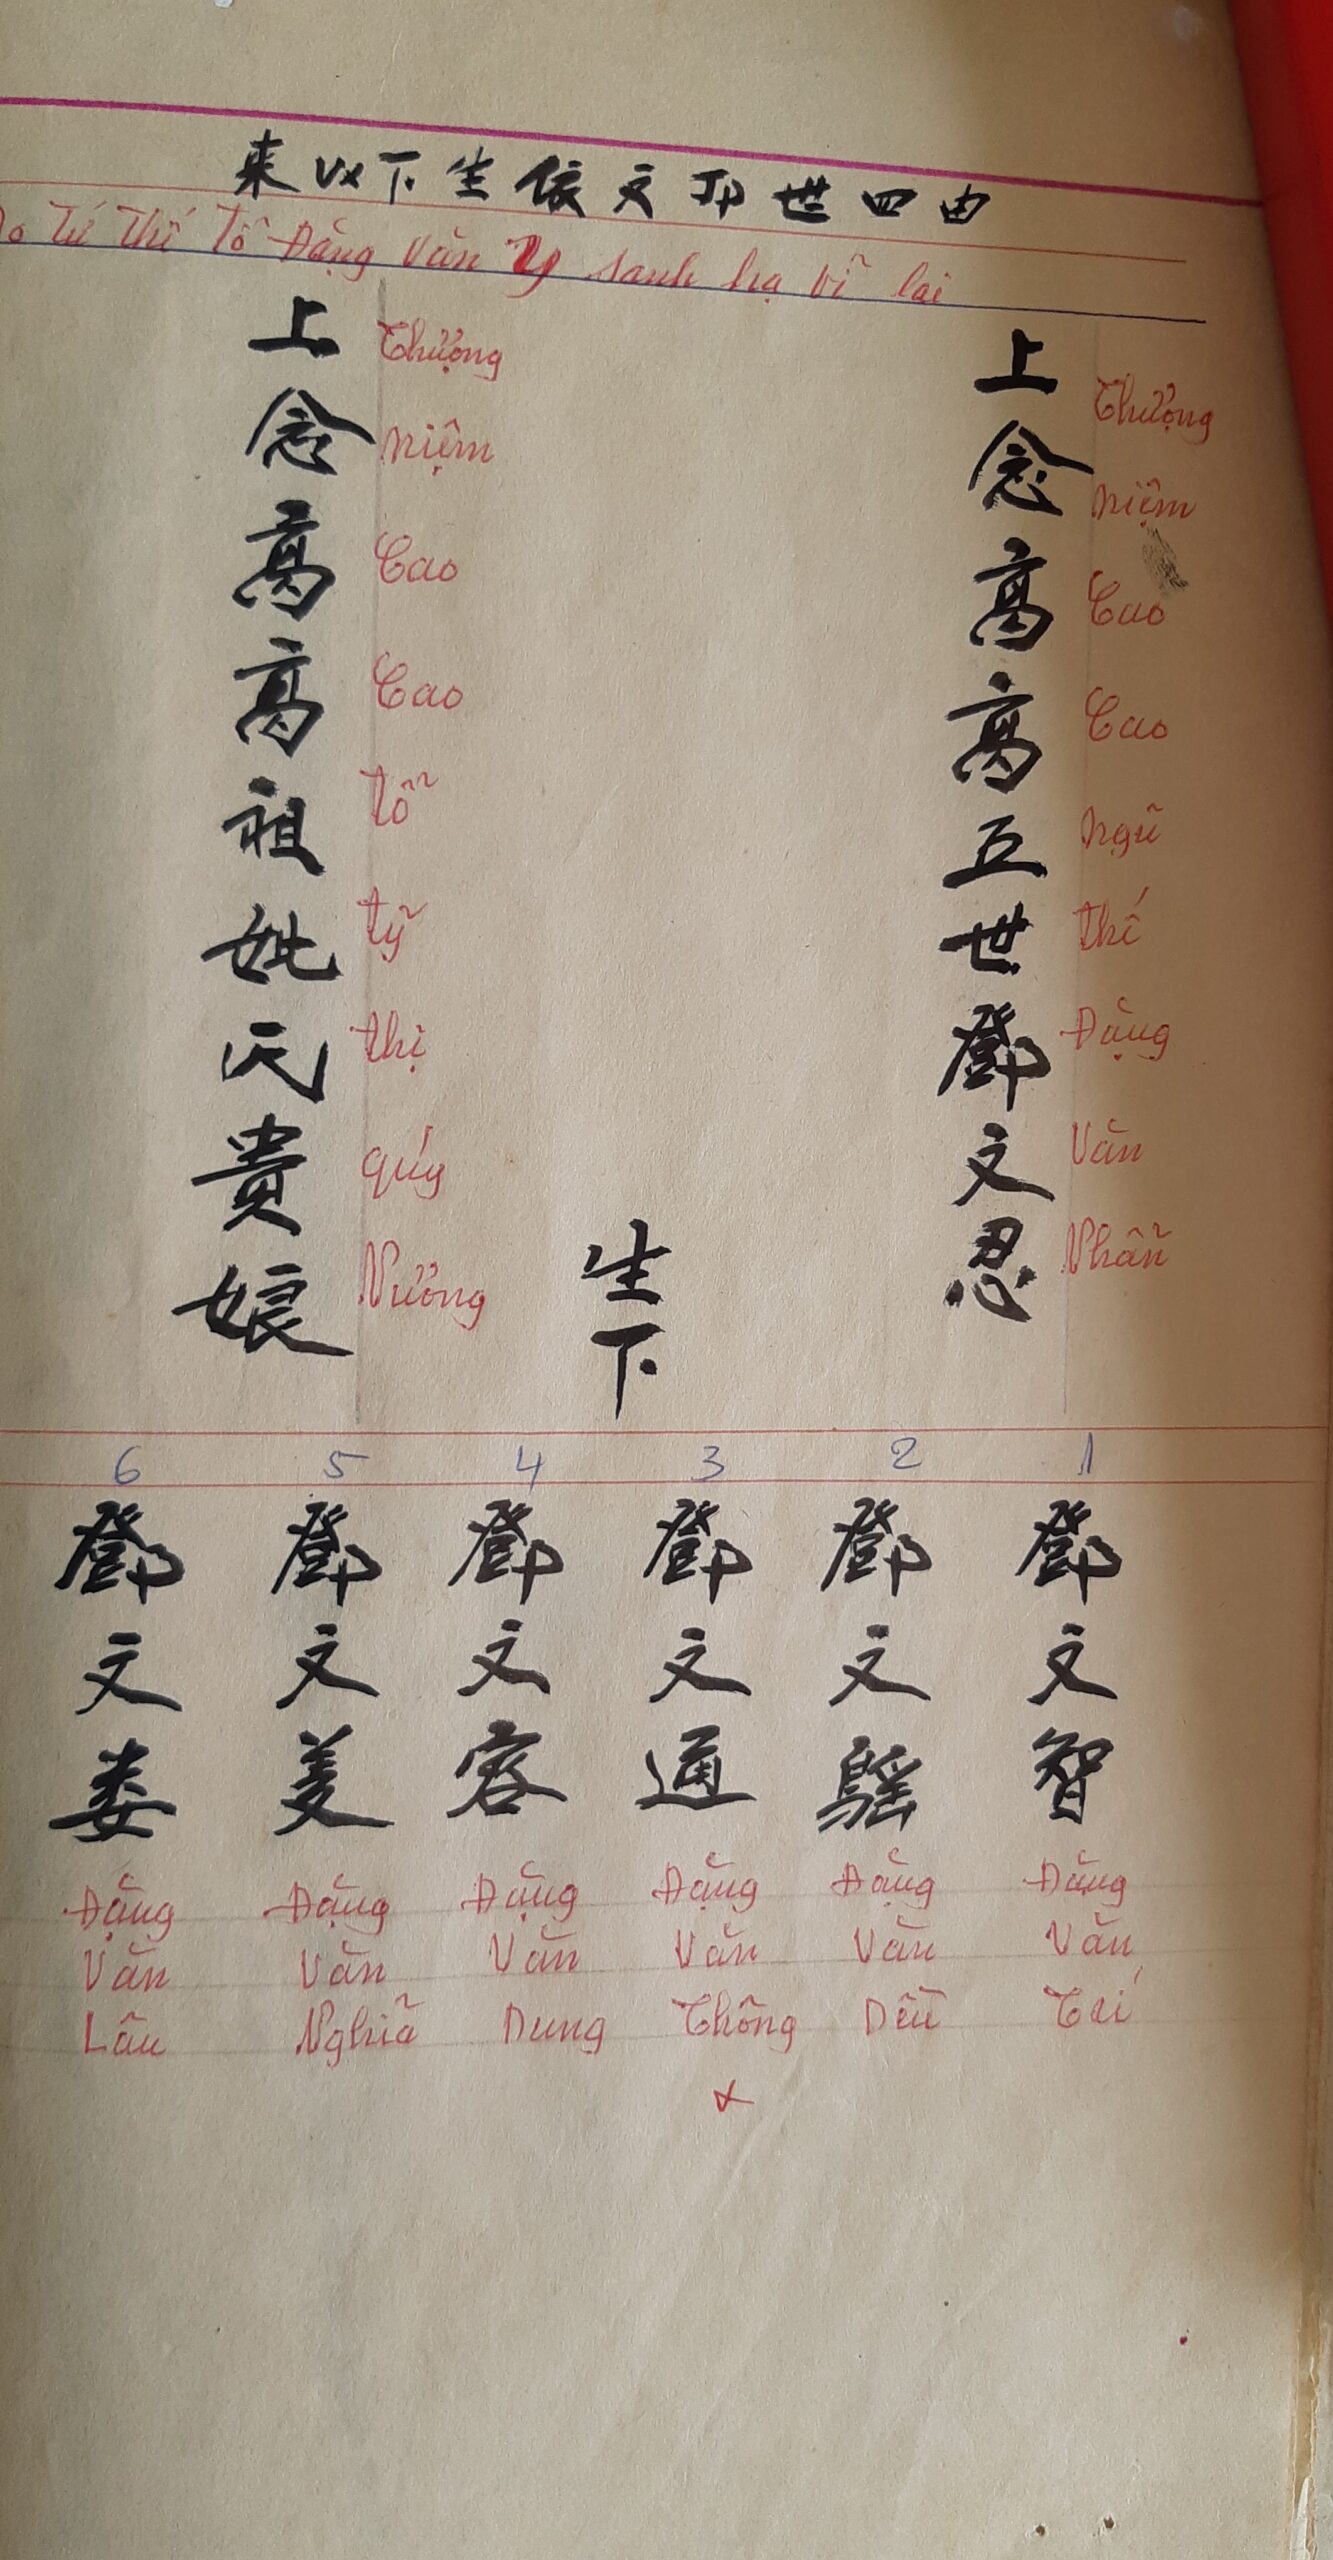 由四世邓文依生下以来
Do Tứ thế Tổ Đặng Văn Y sanh hạ vĩ lai
上念高高五世鄧文忍
Thượng niệm Cao Cao ngũ thế Đặng Văn Nhẫn
上念高高祖妣氏貴娘
Thượng niệm Cao Cao tổ tỹ thị quý Nương
生下
1 2 3 4 5 6
鄧文智
Đặng Văn Trí
鄧文
Đặng Văn Dêu
鄧文通
Đặng Văn Thông
鄧文容
Đặng Văn Dung
鄧文美
Đặng Văn Nghĩa
鄧文娄
Đặng Văn Lâu